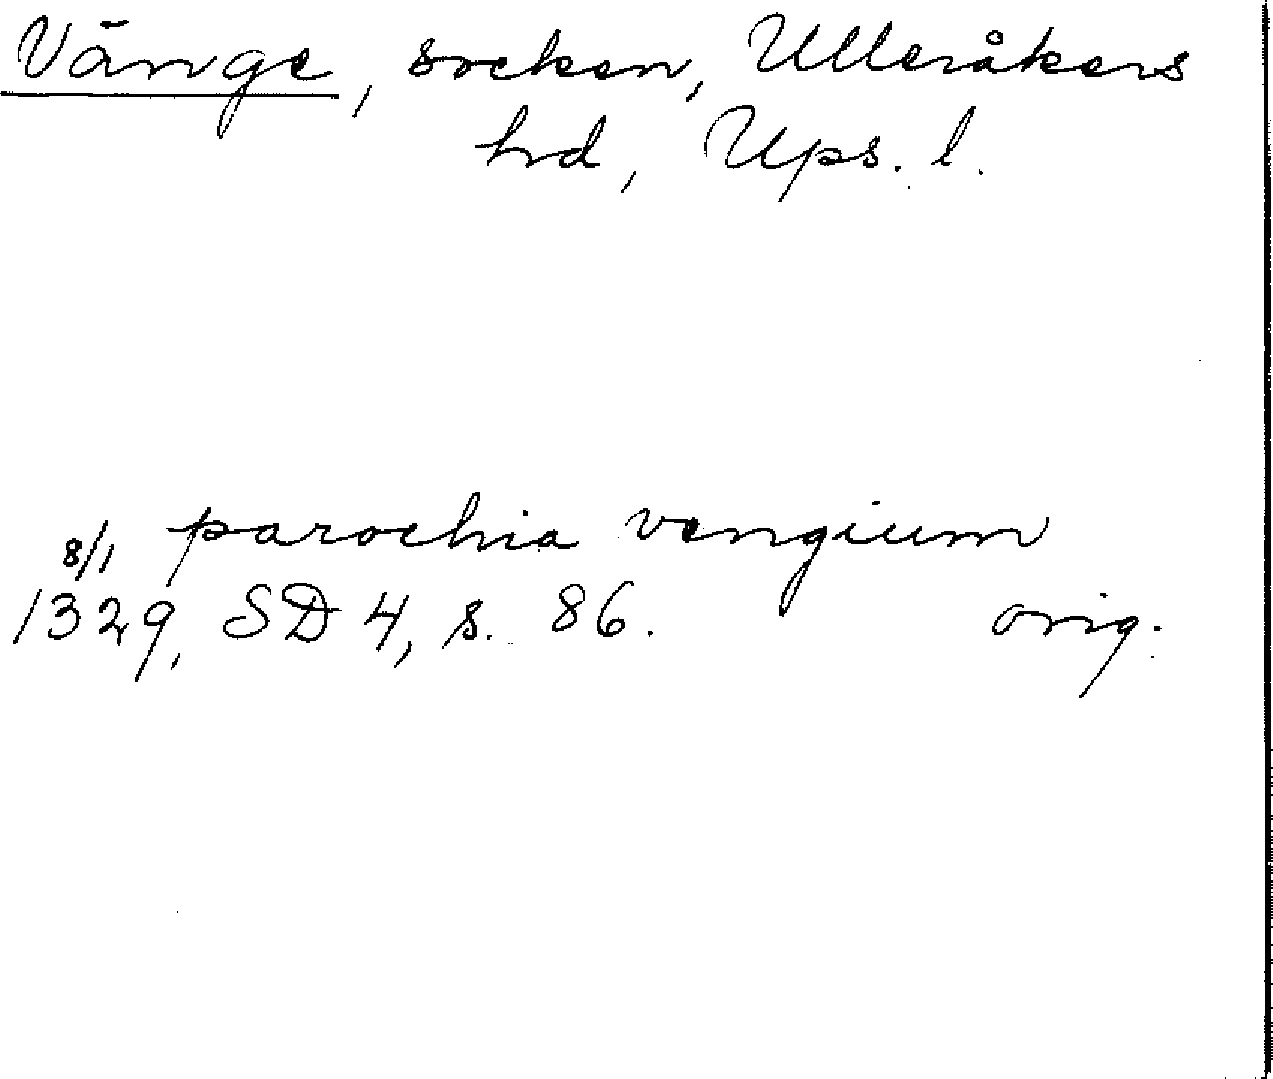 Vänge, socken, Ulleråkers
hd, Ups. l.
8/1 parochia vengium
1329, SD 4, s. 86. orig.